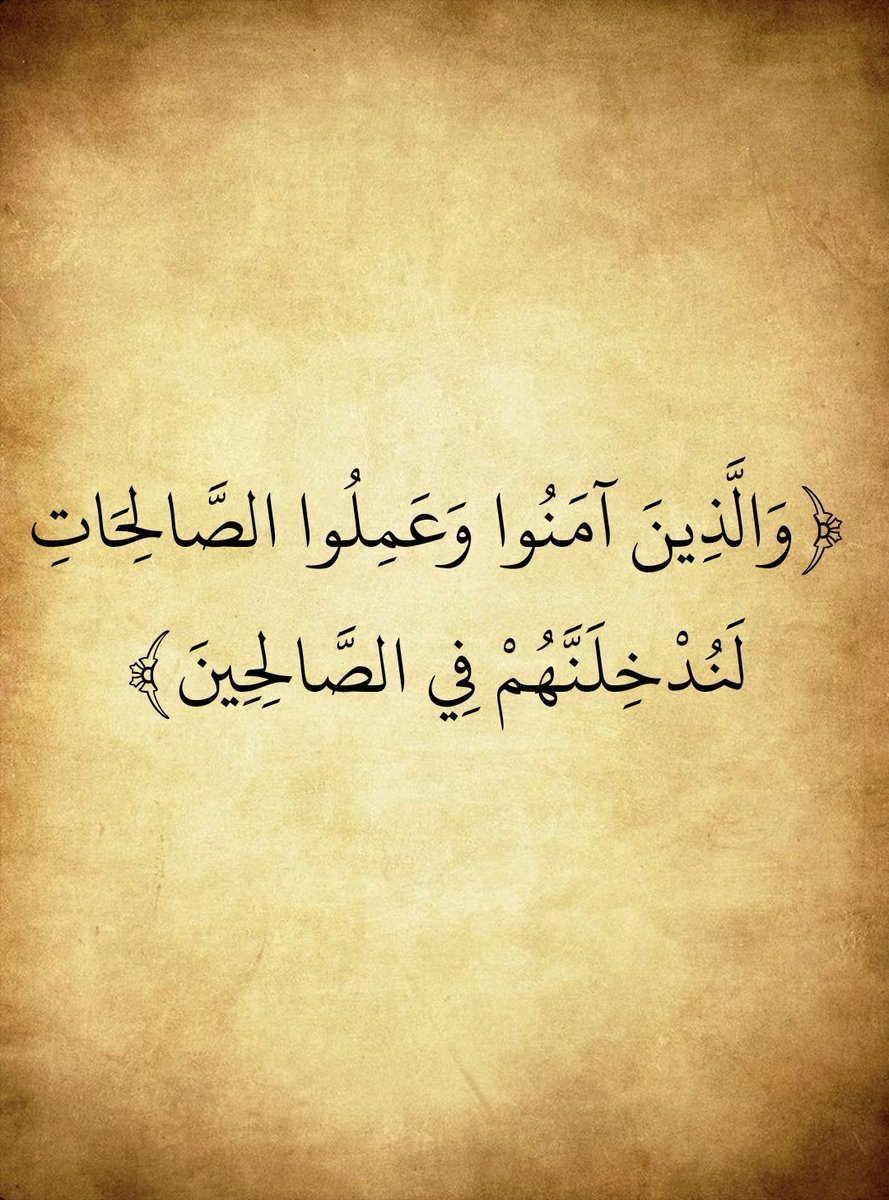 ﴿وَالَّذِينَ آمَنُوا وَعَمِلُوا الصَّالِحَاتِ
لَنُدْخِلَنَّهُمْ فِي الصَّالِحِينَ﴾